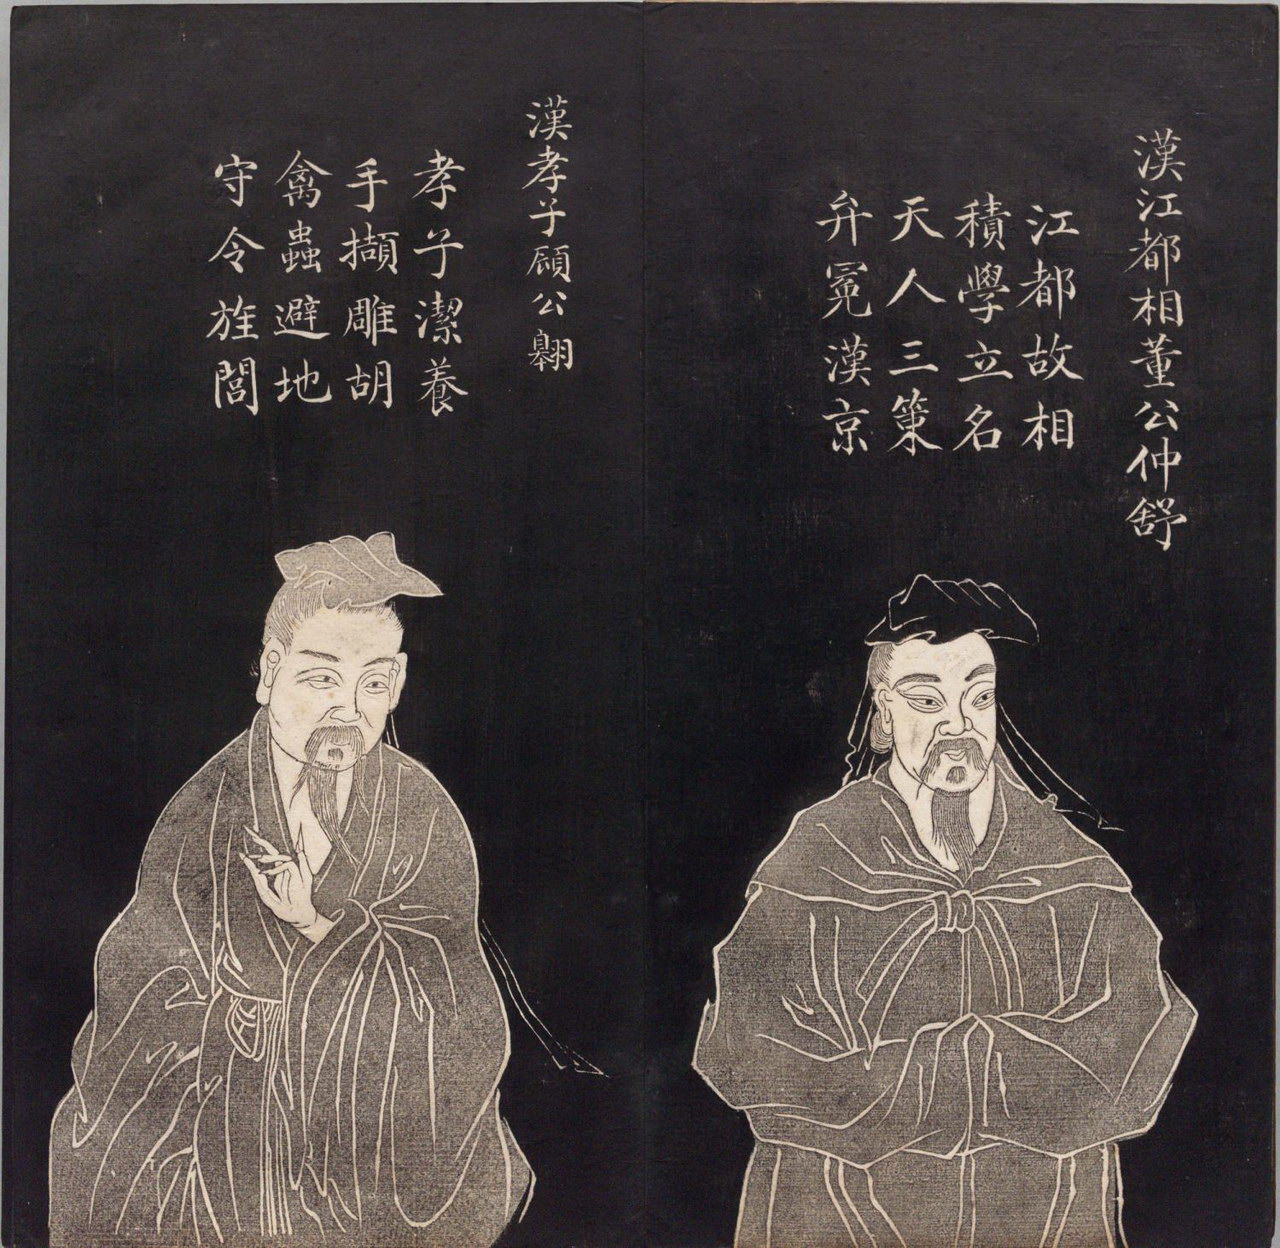 漢江都相董公仲舒
江都故相
積學立名
天人三策
弁冕漢京
漢孝子顧公翱
孝子潔養
手擷雕胡
禽蟲避地
守令旌閭